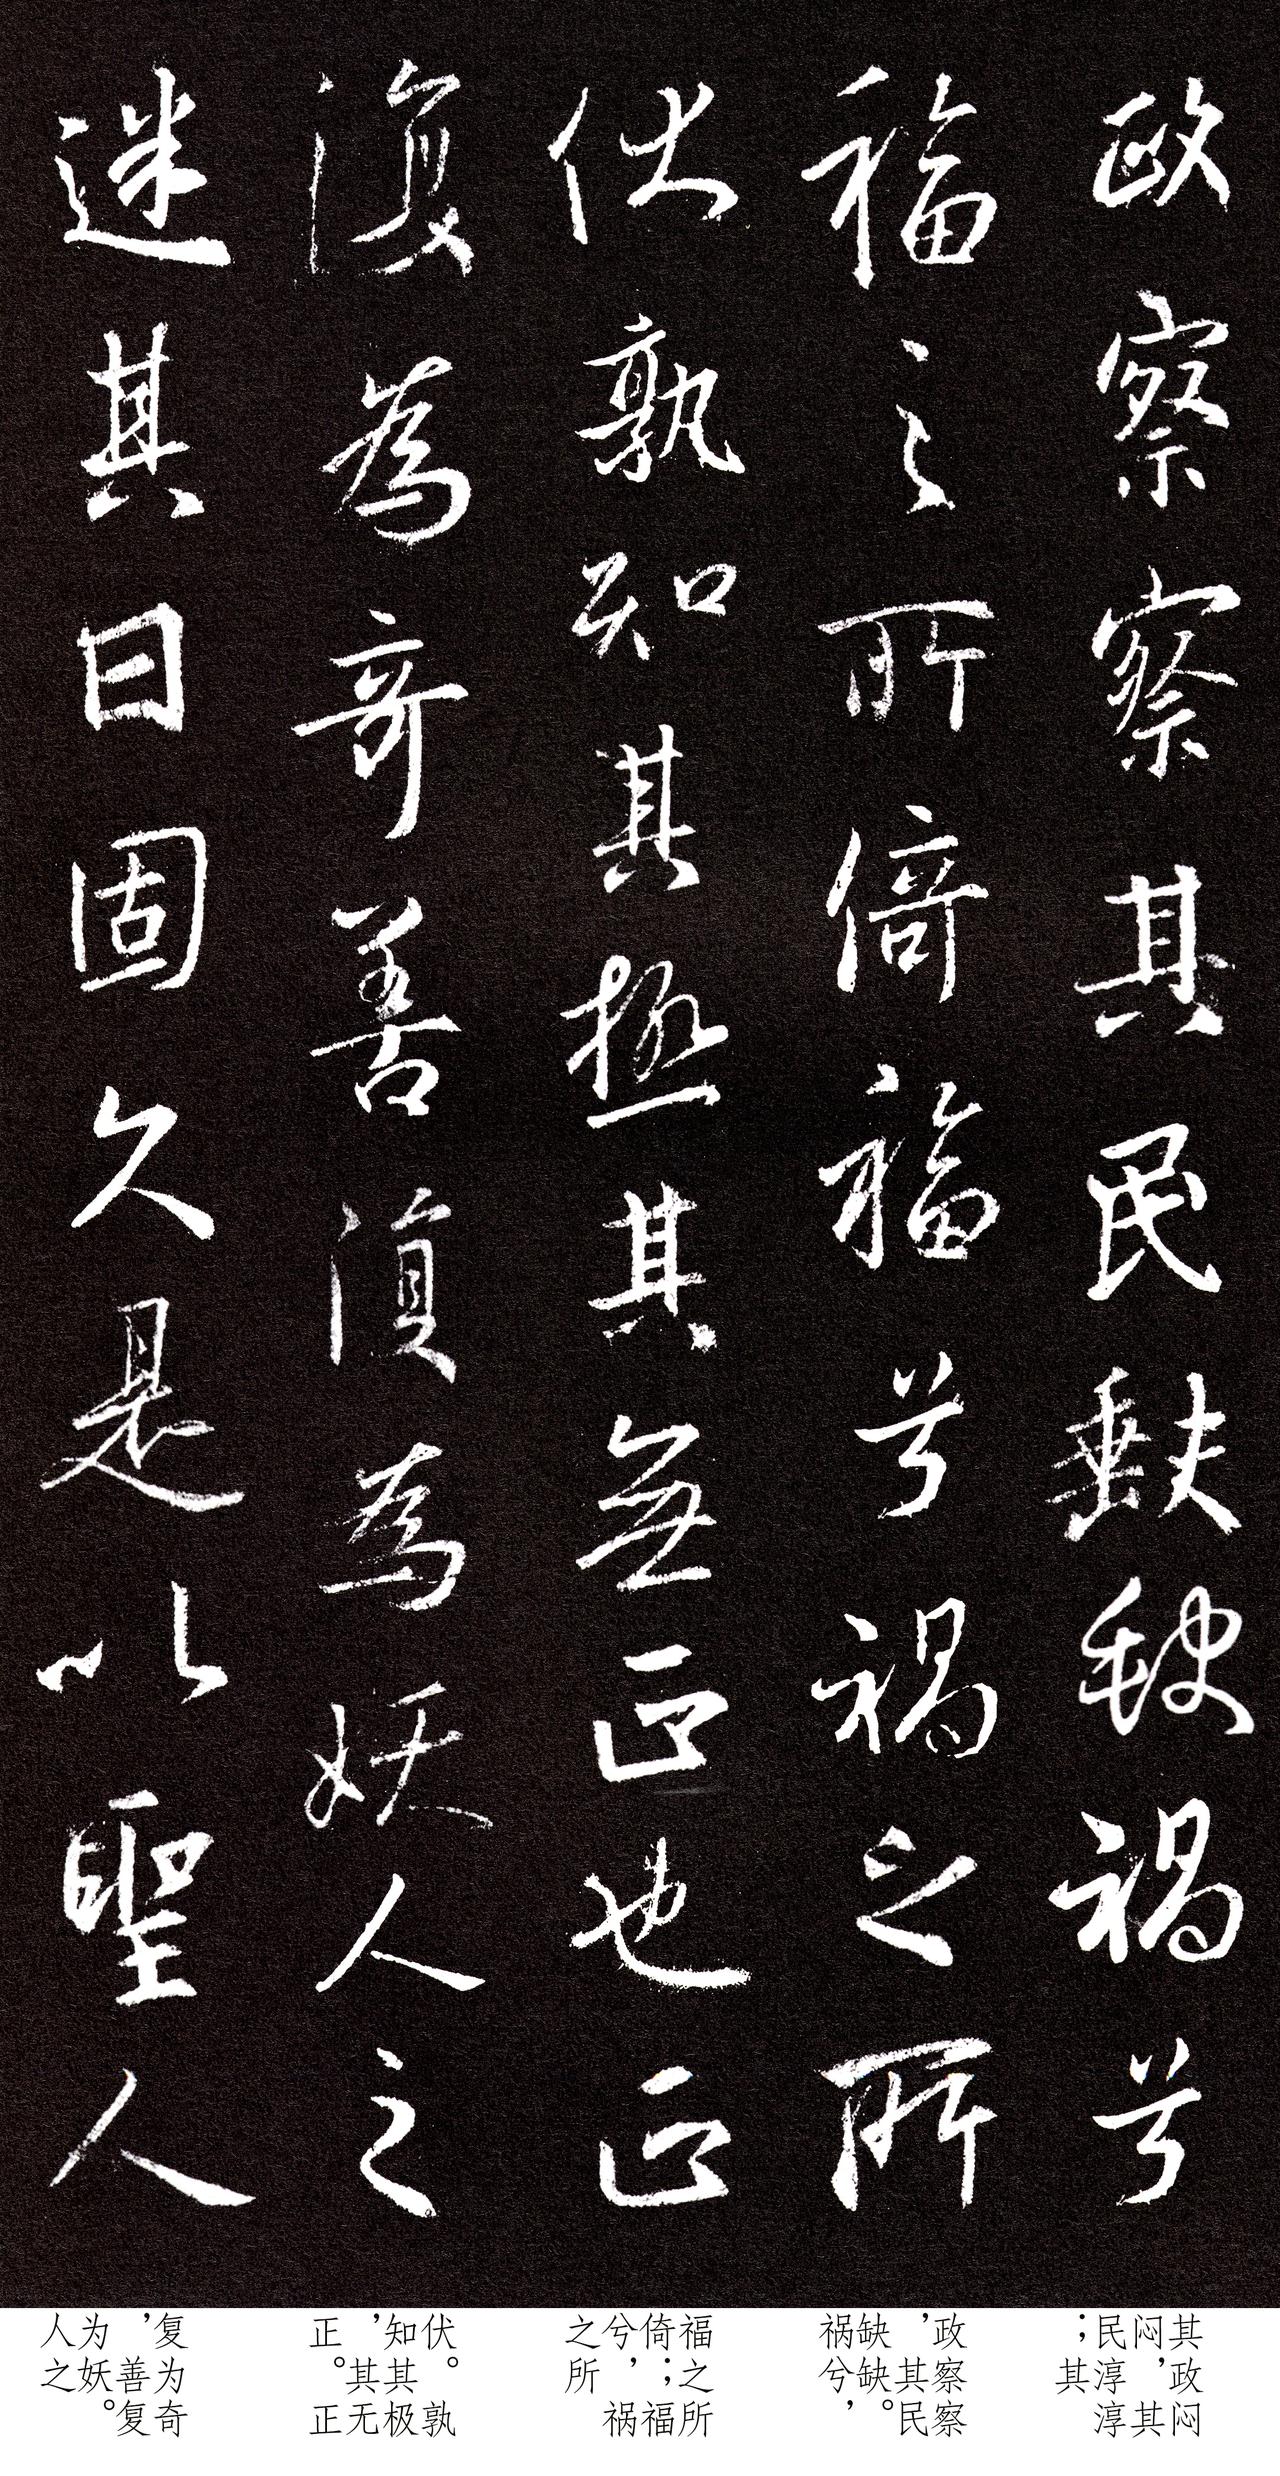 政察察其民缺缺禍兮
福之所倚福兮禍之所
伏孰知其極其無正也正
復為奇善復為妖人之
迷其日固久是以聖人
其政闷
闷，其
民淳淳
；其
政察察
，其民
缺缺。
祸兮，
福之所
倚；福
兮，祸
之所
伏。孰
知其极
，其无
正。正
复为奇
，善复
为妖。
人之